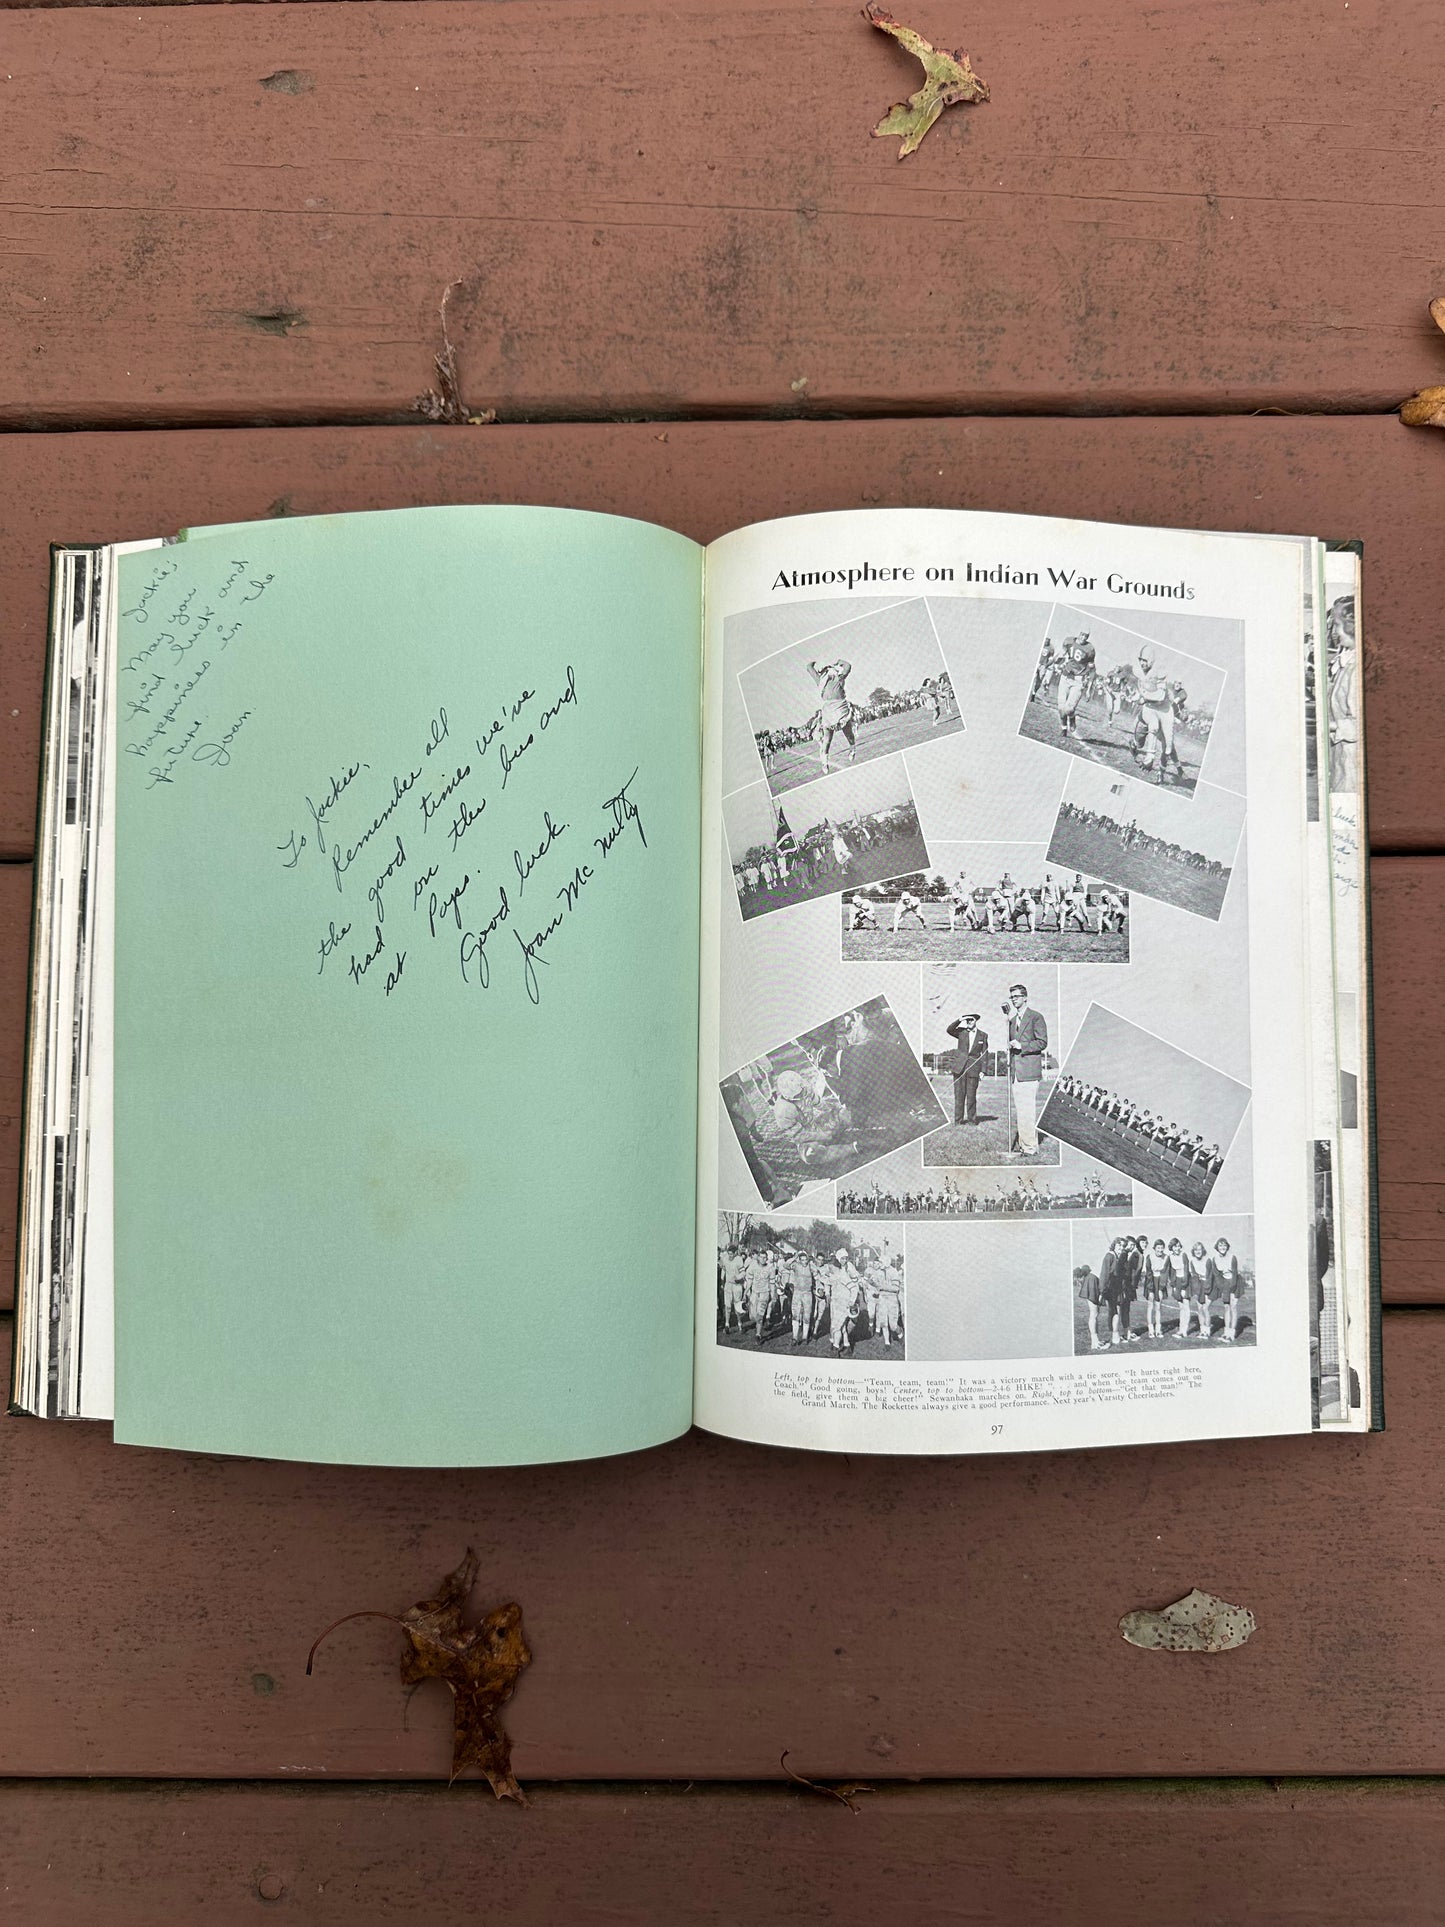 Jackie;
May you
find luck and
happiness in the
future.
Joan.
To Jackie,
Remember all
the good times we've
had on the bus and
at Pops.
Good luck.
Joan Mc Nulty
Atmosphere on Indian War Grounds
16
Left, top to bottom—"Team, team, team!" It was a victory march with a tie score. "It hurts right here,
Coach." Good going, boys! Center, top to bottom—2-4-6 HIKE! ". . . and when the team comes out on
the field, give them a big cheer!" Sewanhaka marches on. Right, top to bottom—"Get that man!" The
Grand March. The Rockettes always give a good performance. Next year's Varsity Cheerleaders.
97
luck